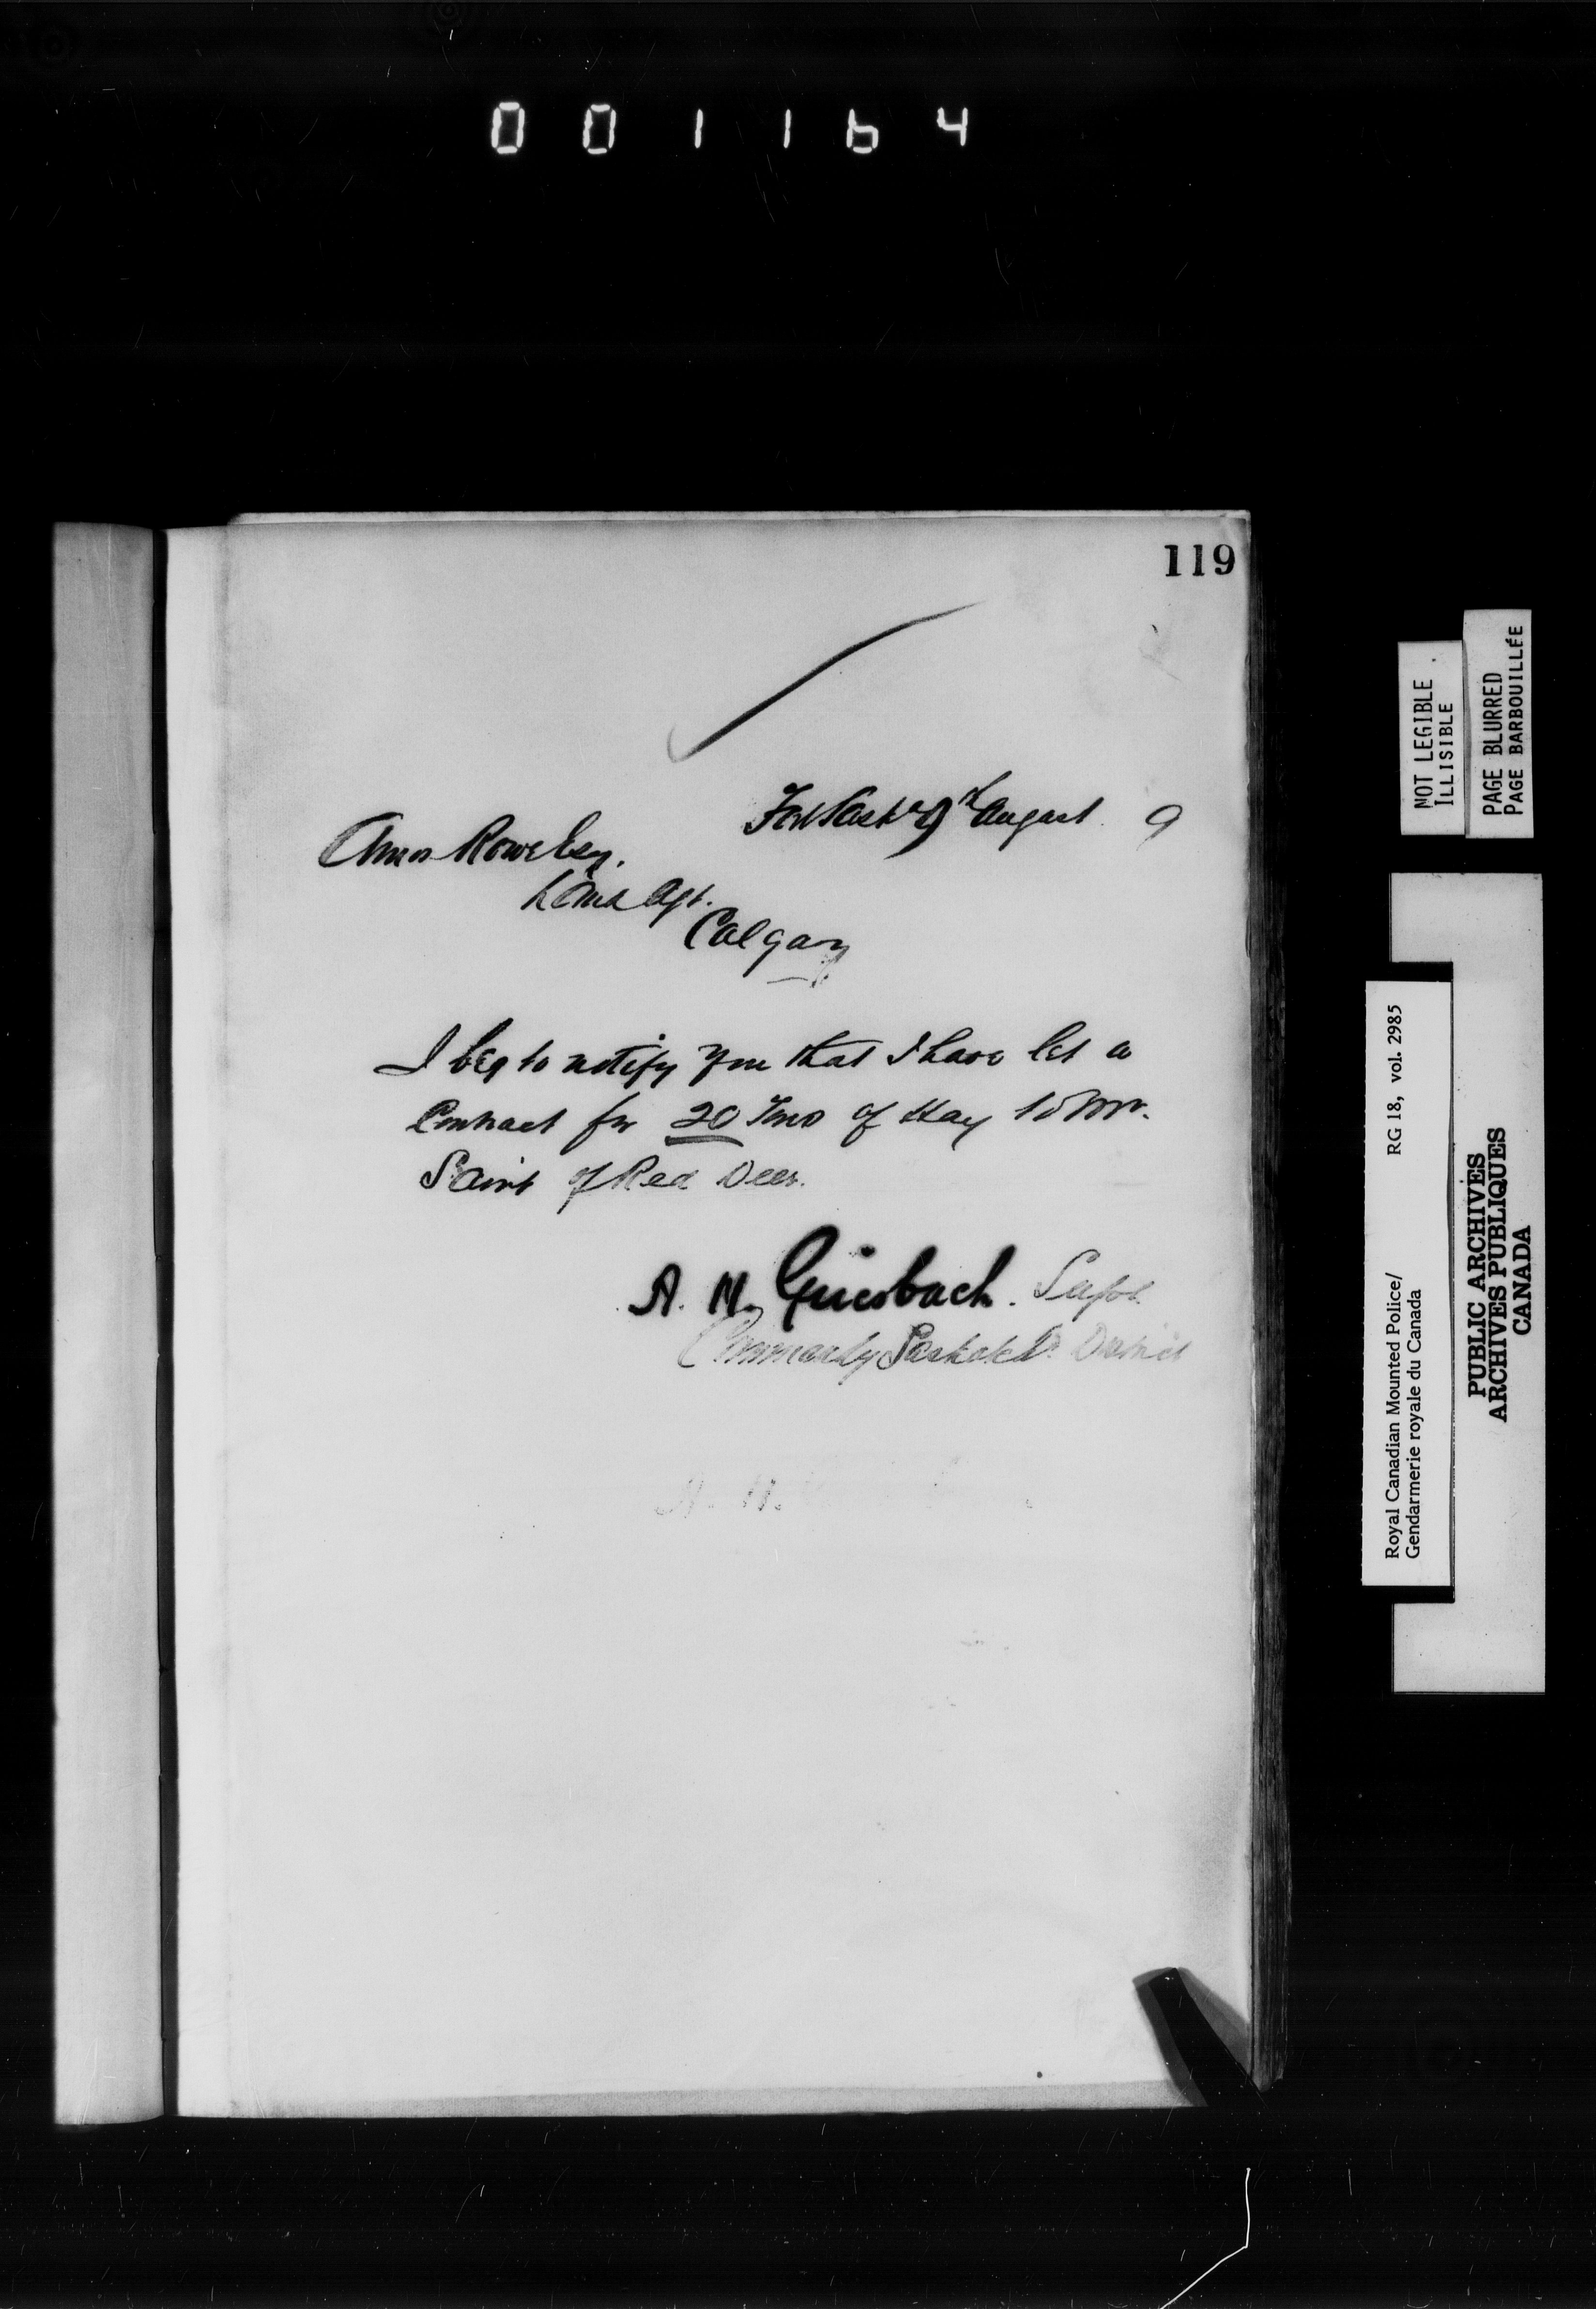 001164
119
Fort Sask 29th August 9
Amos Rowe Esq.
Land Agt.
Calgary
I beg to notify you that I have let a
Contract for 20 Tons of Hay to Mr.
Saint of Red Deer.
A. H. Griesbach. Supt.
Commandg Saskatch District
NOT LEGIBLE
ILLISIBLE
PAGE BLURRED
PAGE BARBOUILLÉE
Royal Canadian Mounted Police/ RG 18, vol. 2985
Gendarmerie royale du Canada
PUBLIC ARCHIVES
ARCHIVES PUBLIQUES
CANADA